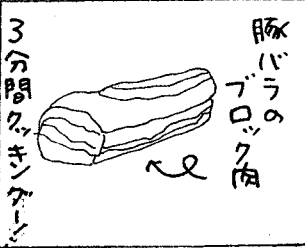 豚バラの
ブロック肉
3分間クッキングー!